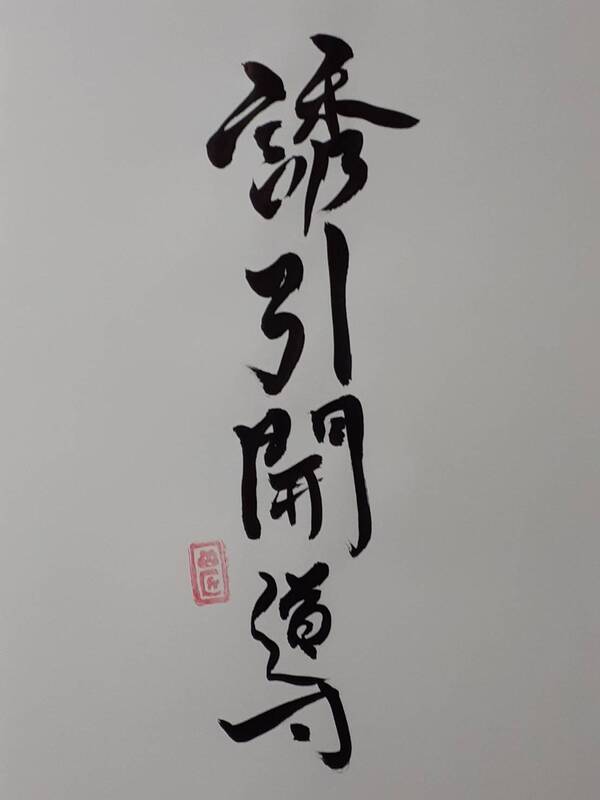 誘引開導